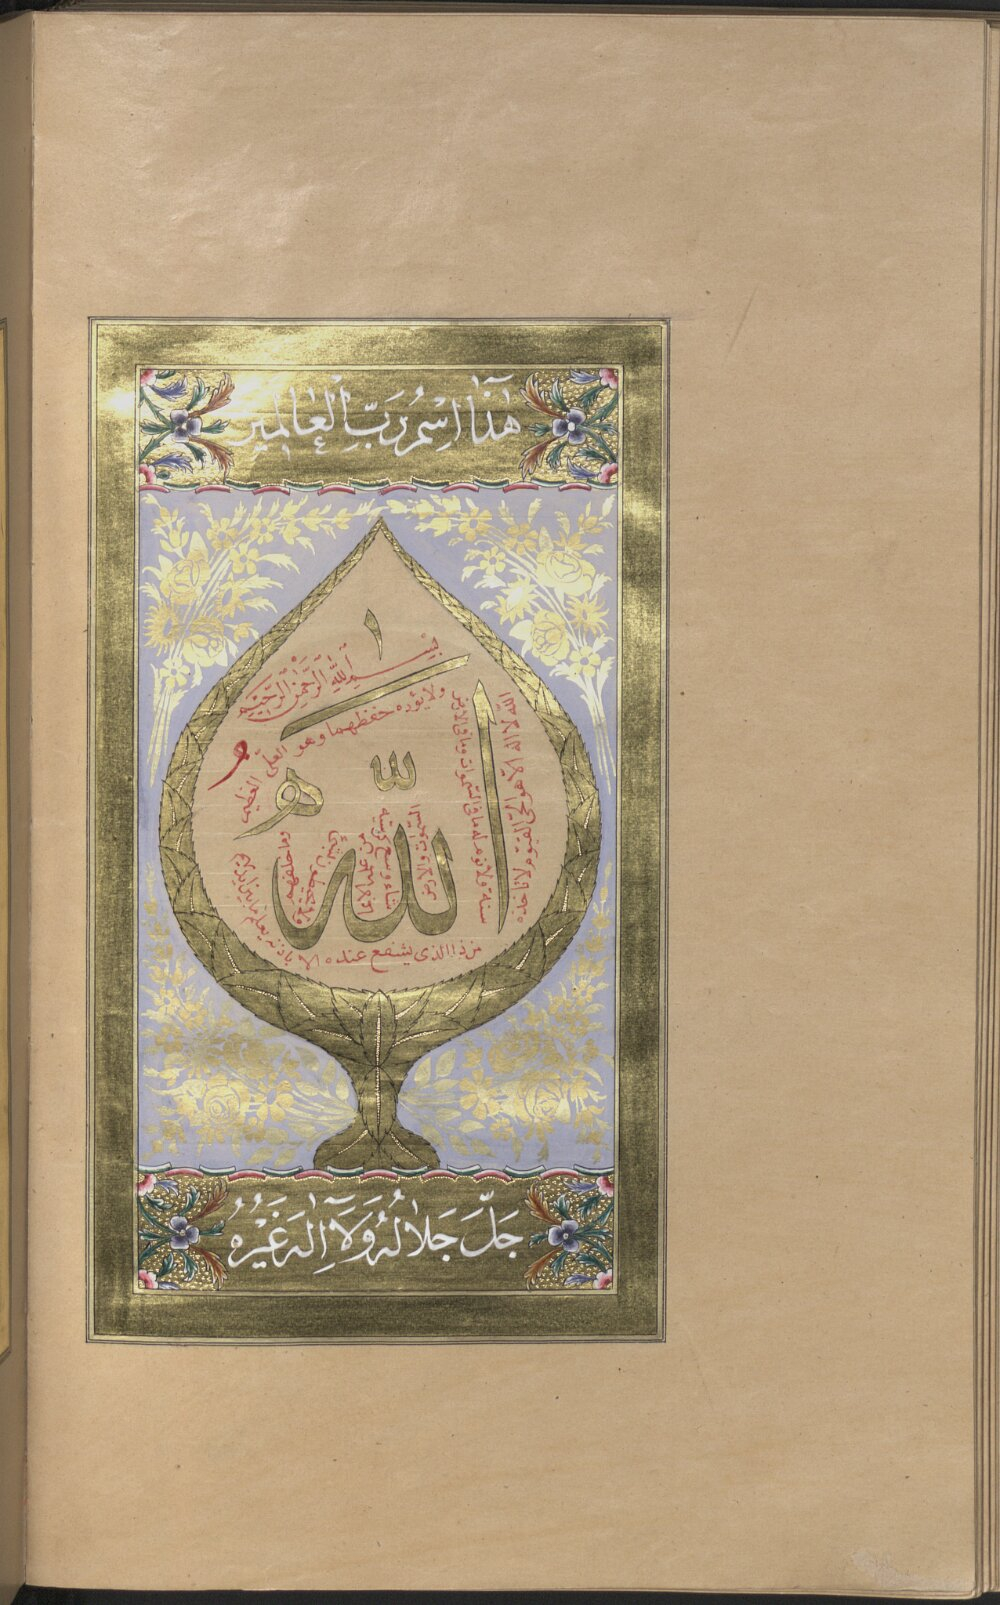 هٰذَا اسْمُ رَبِّ الْعَالَمِينَ
بِسْمِ اللّٰهِ الرَّحْمٰنِ الرَّحِيْمِ
اللّٰه
الله لا اله الا هو الحي القيوم لا تاخذه
سنة ولا نوم له ما في السموات وما في الارض
من ذا الذي يشفع عنده الا باذنه يعلم ما بين ايديهم
وما خلفهم ولا يحيطون بشيء
من علمه الا بما
شاء وسع كرسيه
السموات والارض
ولا يؤده حفظهما وهو العلي العظيم
جَلَّ جَلَالُهُ وَلَآ اِلٰهَ غَيْرُهُ